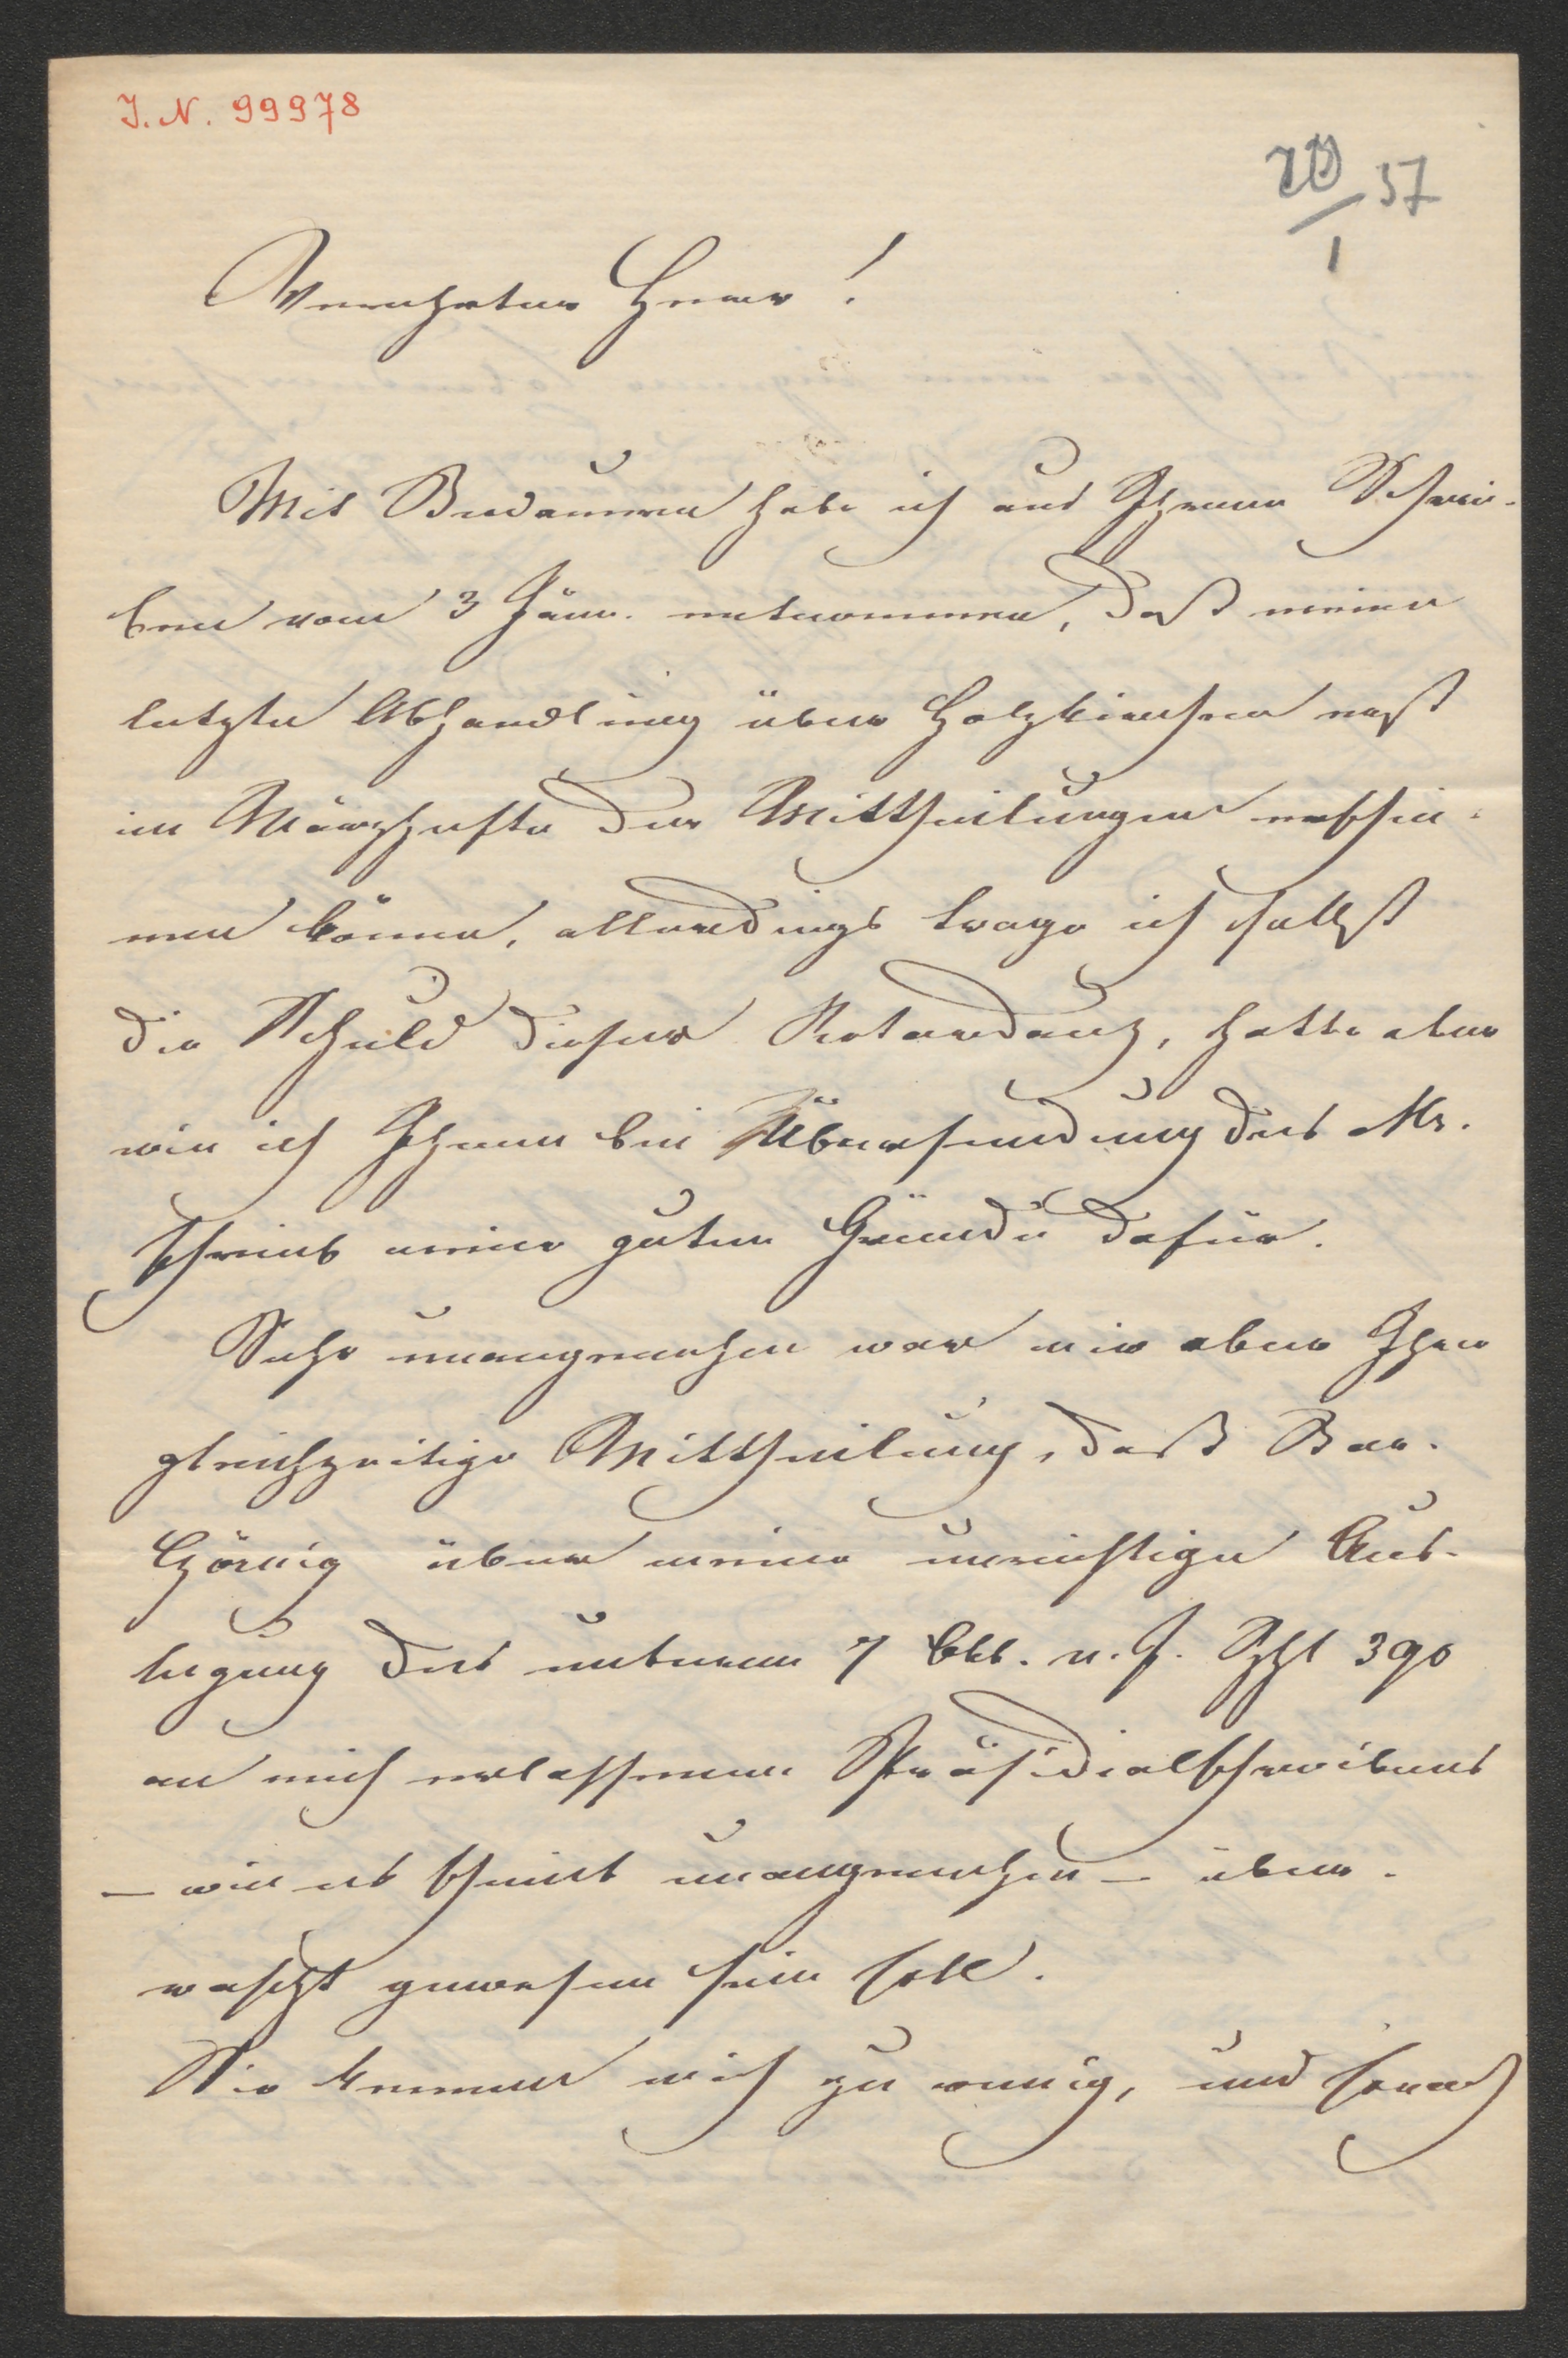 J. N. 99978
20/1 57
Verehrter Herr!
Mit Bedauern habe ich aus Ihrem Schrei-
ben vom 3 Jänn. entnommen, daß meine
letzte Abhandlung über Holzkirchen erst
im Märzhefte der Mittheilungen erschei-
nen könne, allerdings trage ich selbst
die Schuld dieser Retardanz, hatte aber
wie ich Ihnen bei Übersendung des Ms.
schrieb meine guten Gründe dafür.
Sehr unangenehm war mir aber Ihre
gleichzeitige Mittheilung, daß Bar.
Czörnig über meine unrichtige Aus-
legung des unterm 7 Obb. v. J. Zhl 390
an mich erlassenen Präsidialschreibens
– wie es scheint unangenehm – über-
rascht gewesen sein soll.
Sie kennen mich zu wenig, und